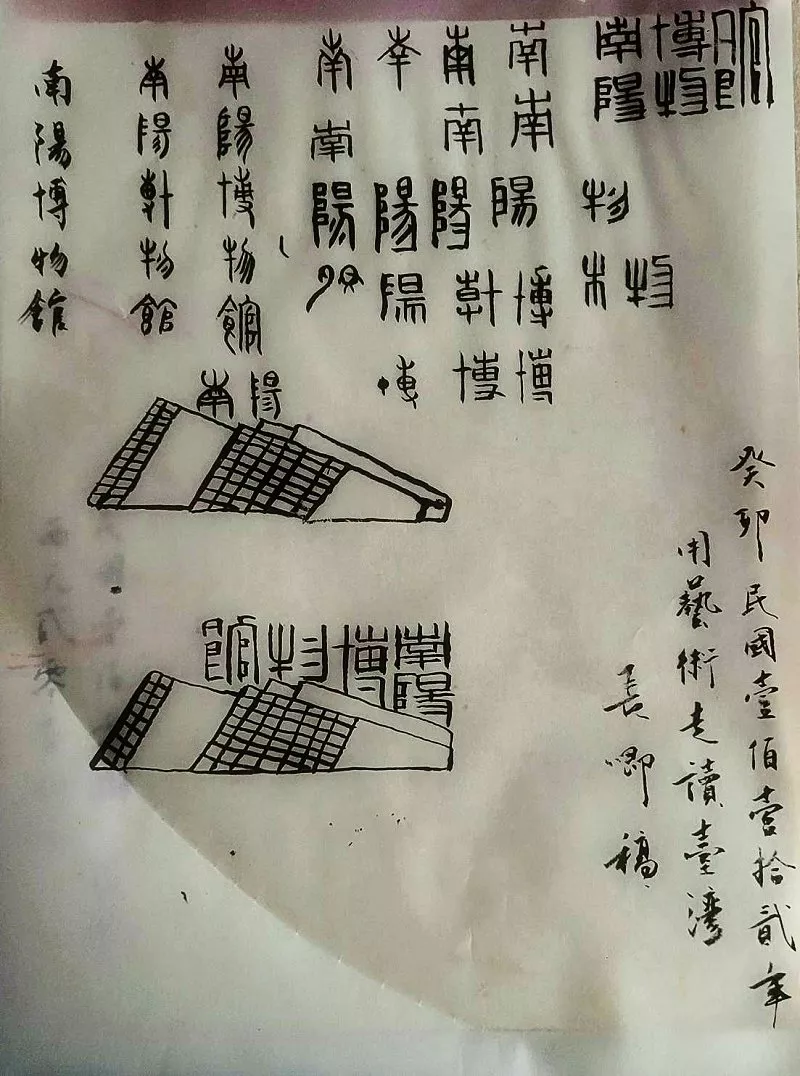 南陽博物館
物
物
南南陽博博
南南陽博博
南陽陽博
南南陽
南陽博物館
南陽博物館
南陽博物館
南陽
南陽博物館
癸卯民國壹佰壹拾貳年
用藝術走讀臺灣
長唧稿